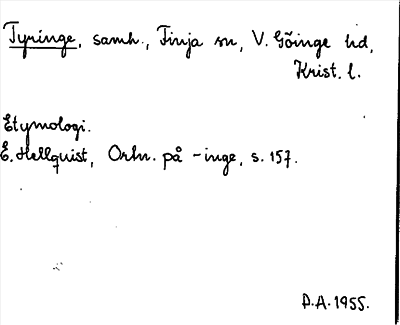 Tyringe, samh., Finja sn, V. Göinge hd,
Krist. l.
Etymologi.
E. Hellquist, Ortn. på -inge, s. 157.
D.A. 1955.